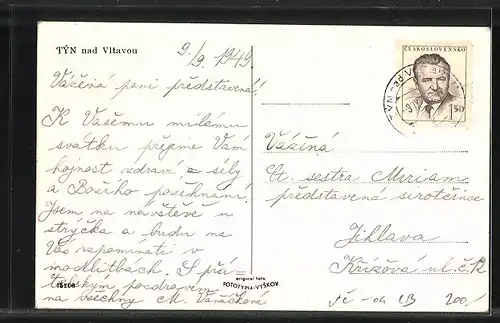 TÝN nad Vltavou
9./9. 1949.
Vážená paní představená!
K Vašemu milému
svátku přejeme Vám
hojnost zdraví a síly
a Božího požehnání.
Jsem na návštěvě u
strýčka a budu na
Vás vzpomínati v
modlitbách. S přá-
telským pozdravem
na všechny M. Vaňáčková
original foto
FOTOTYPIA-VYŠKOV
ČESKOSLOVENSKO
1.50
Vážená
Ct. sestra Miriam
představená sirotčince
Jihlava
Křížová ul. č.
200,/